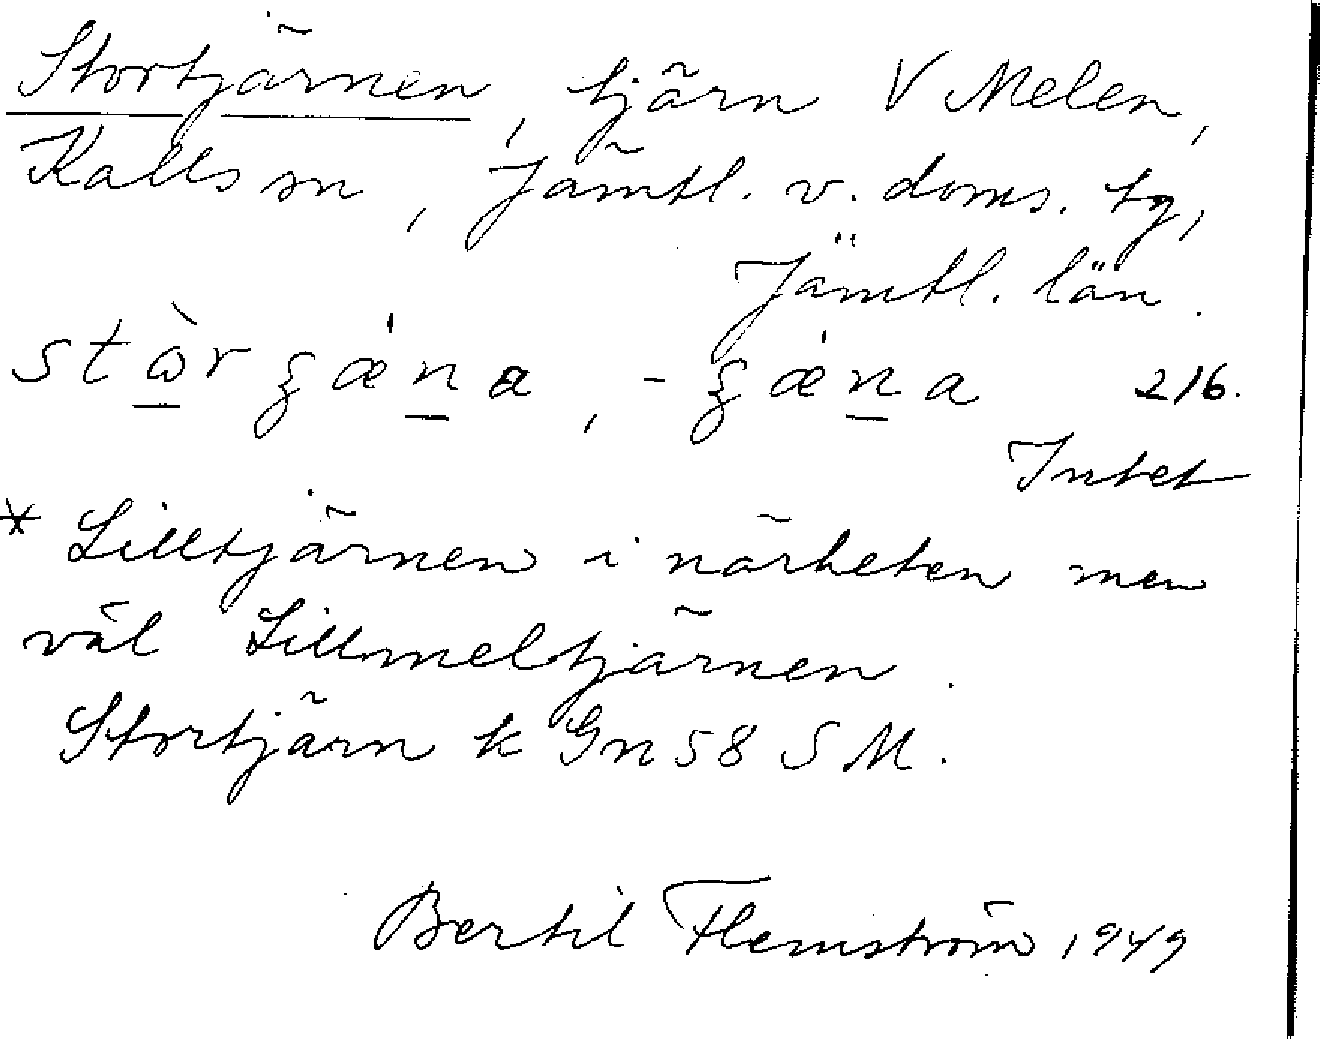 Stortjärnen, tjärn V Melen,
Kalls sn, Jämtl. v. doms. tg,
Jämtl. län.
stὼrʒǽna, -ʒǽna 216.
Intet
* Lilltjärnen i närheten men
väl Lillmeltjärnen.
Stortjärn k Gn 58 S M.
Bertil Flemström 1949